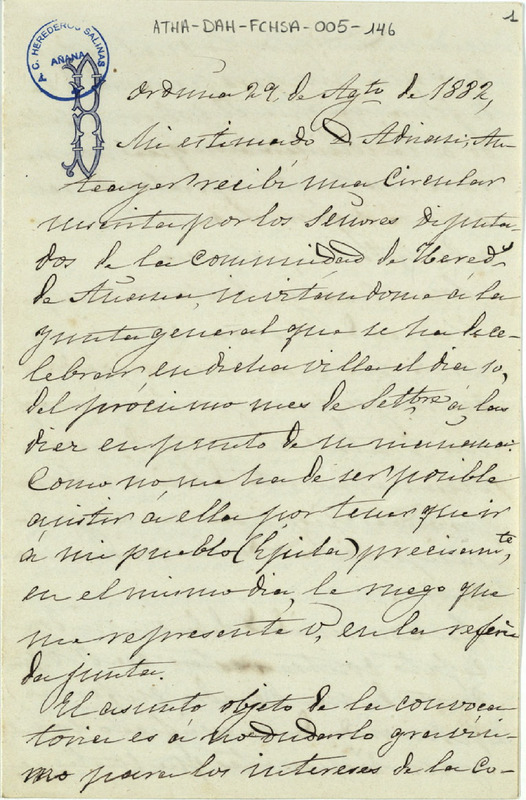 ATHA-DAH-FCHSA-005-146
1
C. HEREDEROS SALINAS
AÑANA
Orduña 29 de Agto de 1882,
Mi estimado D. Adrian; An-
teayer recibí una Circular
suscrita por los Señores Diputa-
dos de la Comunidad de Hereds
de Añana, invitandome á la
junta general que se ha de ce-
lebrar en dicha villa el dia 10,
del prócimo mes de Setbre á las
diez en punto de su mañana.
Como no me ha de ser posible
asistir á ella por tener que ir
á mi pueblo (Espita) precisamte
en el mismo dia, le ruego que
me represente V, en la referi
da junta.
El asunto objeto de la convoca
toria es á no dudarlo gravisi-
mo para los intereses de la Co-